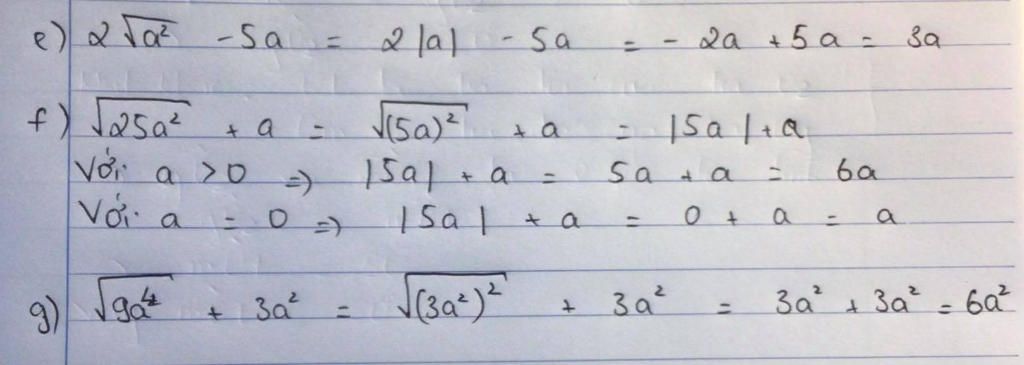 e) 2√a² - 5a = 2|a| - 5a = - 2a + 5a = 3a
f) √25a² + a = √(5a)² + a = |5a| + a
Với a > 0 => |5a| + a = 5a + a = 6a
Với a = 0 => |5a| + a = 0 + a = a
g) √9a⁴ + 3a² = √(3a²)² + 3a² = 3a² + 3a² = 6a²